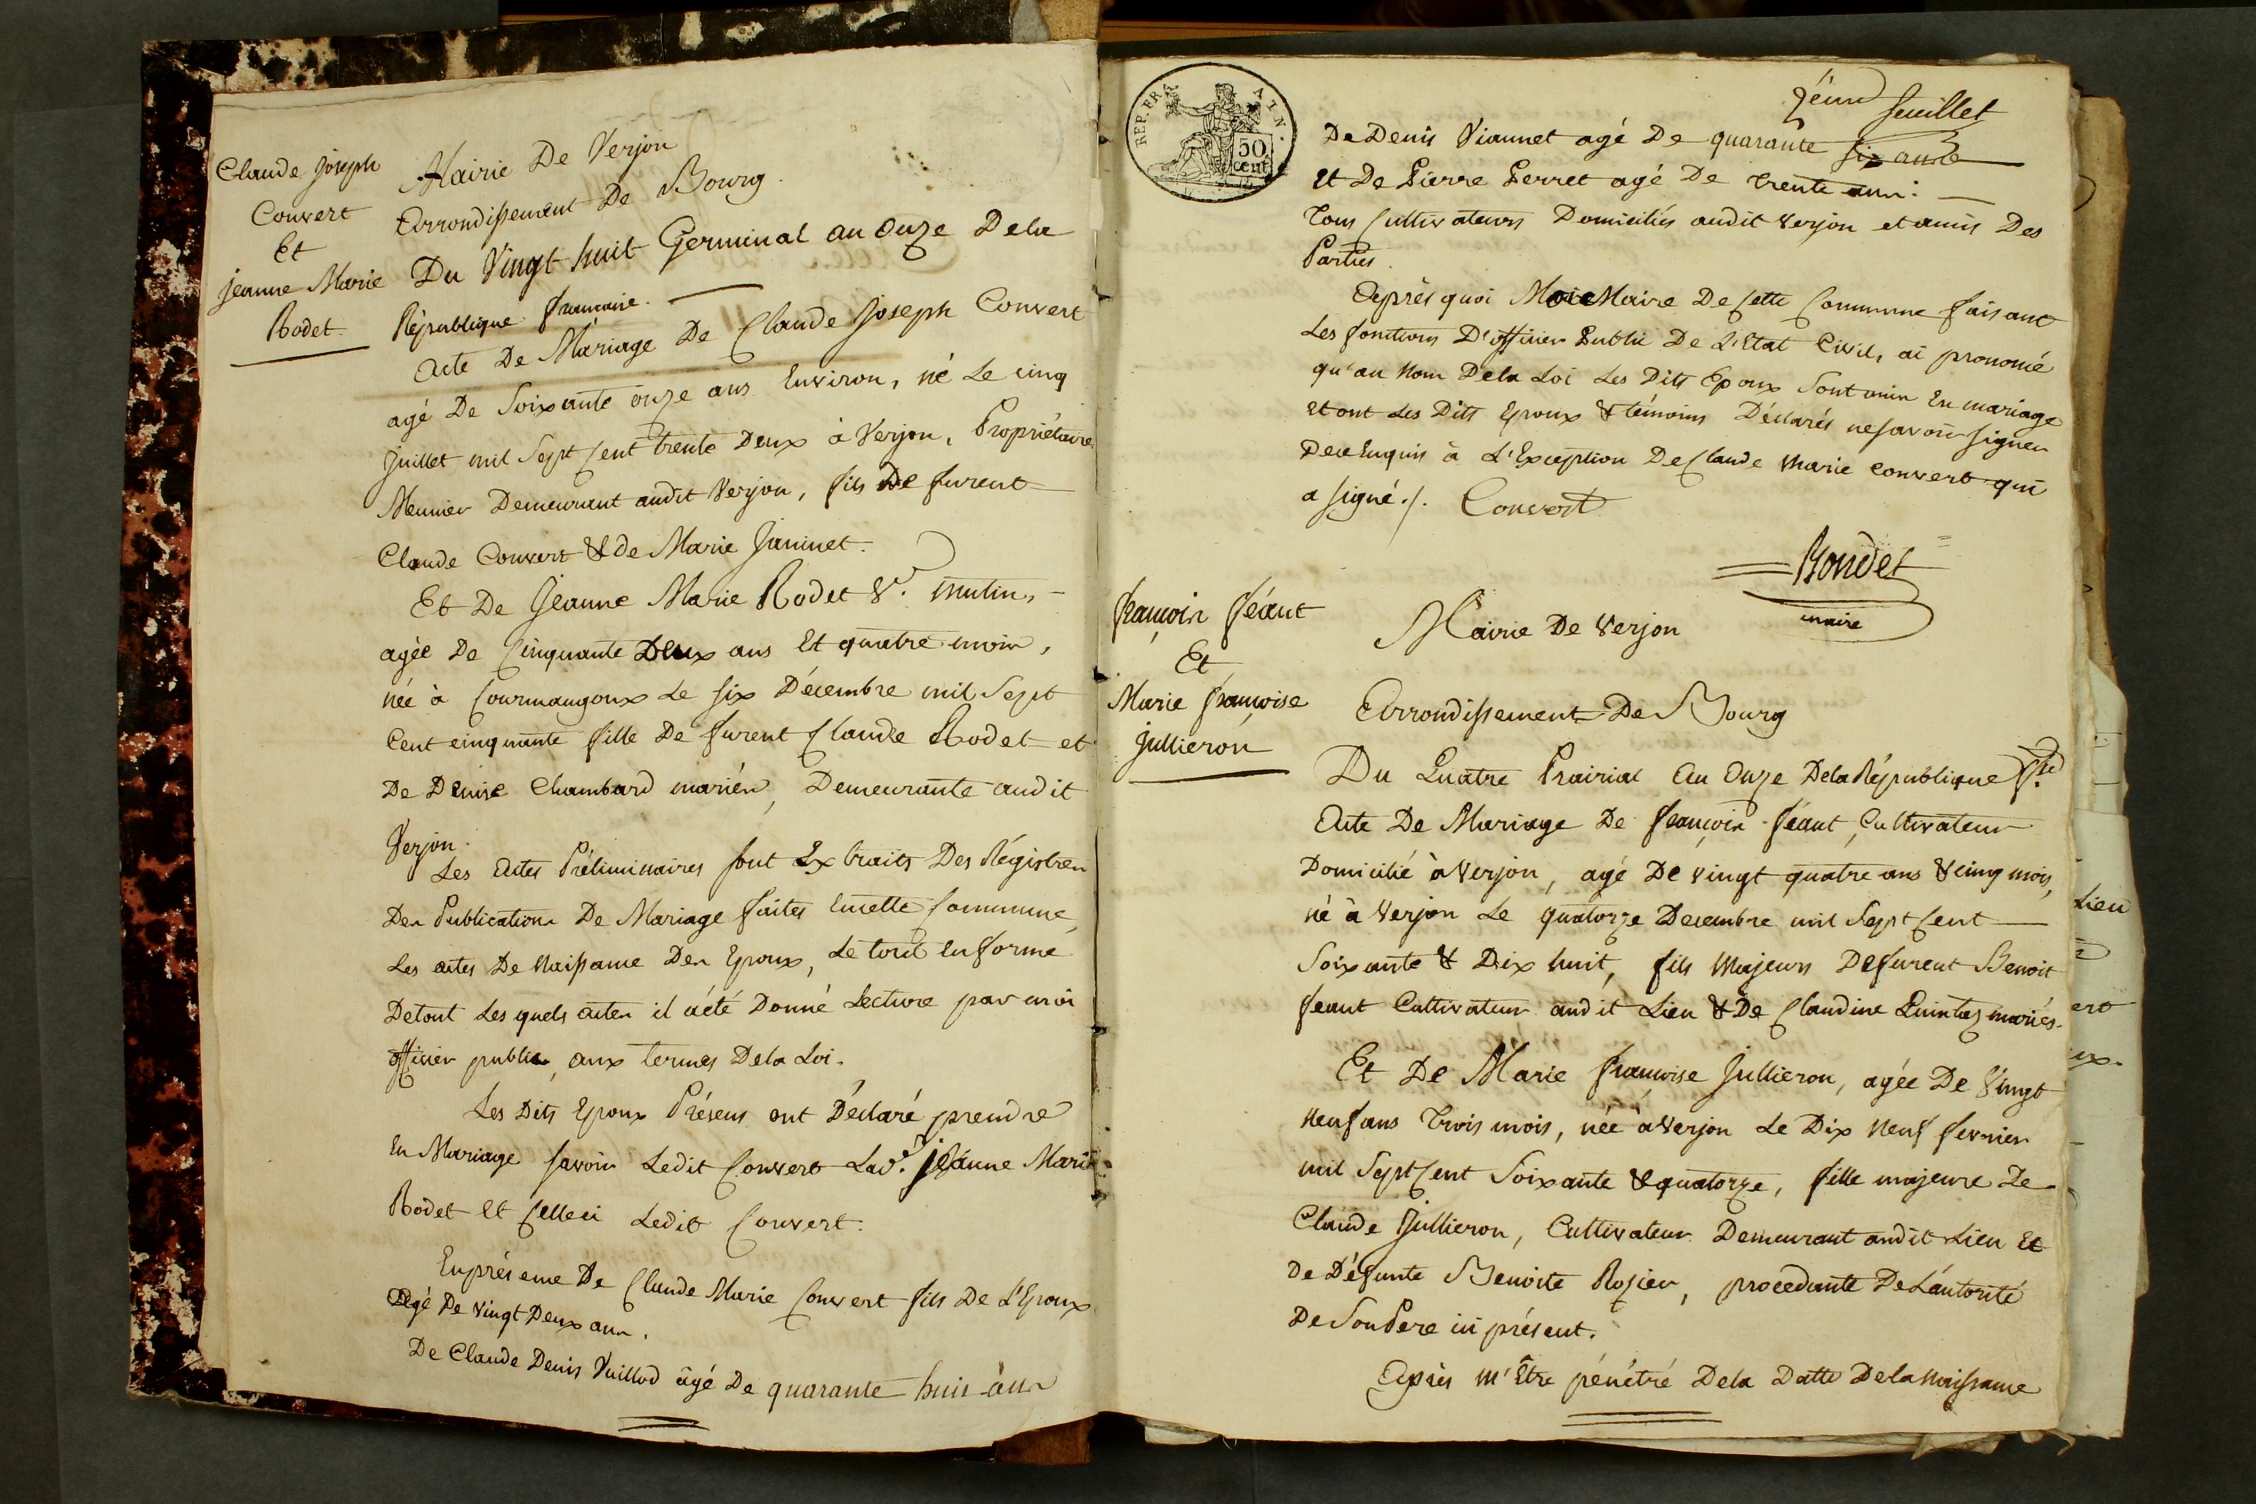 Claude Joseph
Convert
Et
Jeanne Marie
Rodet
Mairie De Verjon
Arrondissement De Bourg.
Du Vingt huit Germinal an Onze Dela
République française.
Acte De Mariage De Claude Joseph Convert
agé De Soixante onze ans Environ, né Le cinq
Juillet mil Sept Cent trente Deux à Verjon, Propriétaire
Meunier Demeurant audit Verjon, fils De furent
Claude Convert & de Marie Janinet.
Et De Jeanne Marie Rodet Ve. Mutin,
agée De Cinquante Deux ans Et quatre mois,
née à Courmangoux Le Six Décembre mil Sept
Cent cinquante fille De furent Claude Rodet et
De Denise Chambard mariés, Demeurante audit
Verjon.
Les Actes Préliminaires sont Extraits Des Régistres
Des Publications De Mariage faites Encette Commune,
Les actes De Naissance Des Epoux, Le tout En forme
Detout Les quels actes il a été Donné Lecture par moi
officier public, aux termes Dela Loi.
Les Dits Epoux Présens ont Déclaré prendre
En Mariage savoir Ledit Convert Lave. Jeanne Marie
Rodet Et Celleci Ledit Convert.
En présence De Claude Marie Convert fils De L'Epoux
Agé De Vingt Deux ans.
De Claude Denis Vuillod âgé De quarante huit ans
REP. FRA
50
cent
2ème feuillet
De Denis Viannet agé De quarante six ans
Et De Pierre Perret agé De trente ans.
Tous Cultivateurs Domiciliés audit Verjon et amis Des
Parties.
Après quoi Moi Maire De Cette Commune faisant
Les fonctions D'officier Public De L'Etat Civil, ai prononcé
qu'au Nom Dela Loi Les Dits Epoux Sont unis En mariage
Et ont Les Dits Epoux & témoins Déclarés ne savoir signer
De ce Enquis à L'Exception De Claude Marie Convert qui
a signé ./. Convert
Rondet
maire
françois féaut
Et
Marie françoise
Jullieron
Mairie De Verjon
Arrondissement De Bourg
Du Quatre Prairial an Onze Dela République fse
Acte De Mariage De françois féaut, Cultivateur
Domicilié à Verjon, agé De vingt quatre ans & cinq mois,
né à Verjon Le quatorze Decembre mil Sept Cent
Soixante & Dix huit, fils Majeurs De furent Benoit
feaut Cultivateur audit Lieu & De Claudine Quintaz mariés.
Et De Marie françoise Jullieron, agée De Vingt
Neuf ans Trois mois, née à Verjon Le Dix Neuf fevrier
mil Sept Cent Soixante & quatorze, fille majeure De
Claude Jullieron, Cultivateur Demeurant audit Lieu Et
De Défunte Benoite Rozier, procedante De L'autorité
De Son Pere ici présent.
Après m'Être pénétré Dela Datte Dela Naissance
Lieu